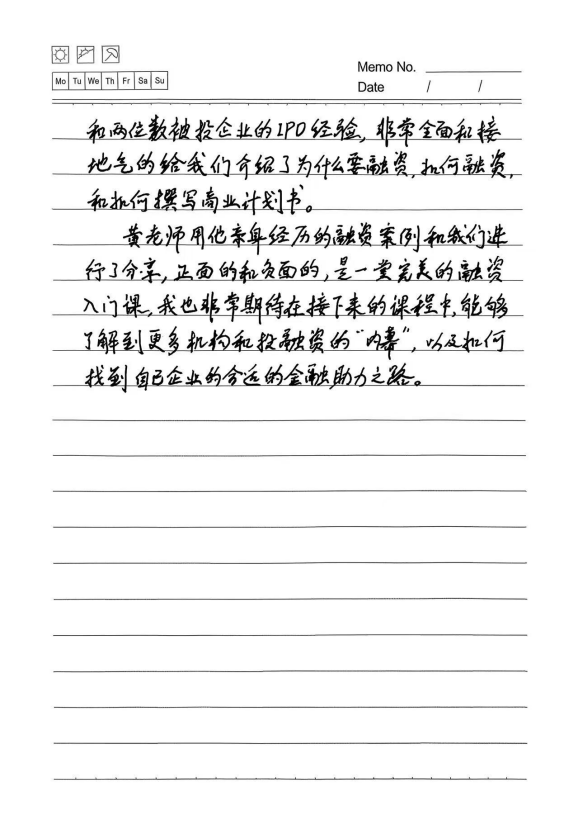 Mo Tu We Th Fr Sa Su
Memo No.
Date / /
和两位数被投企业的IPO经验, 非常全面和接
地气的给我们介绍了为什么要融资, 如何融资,
和如何撰写商业计划书。
黄老师用他亲身经历的融资案例和我们进
行了分享, 正面的和负面的, 是一堂完美的融资
入门课, 我也非常期待在接下来的课程中, 能够
了解到更多机构和投融资的“内幕”, 以及如何
找到自己企业的合适的金融助力之路。